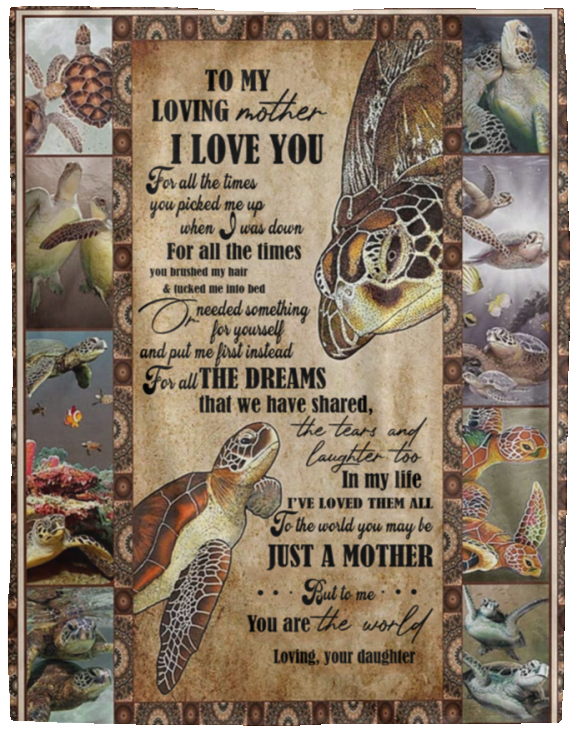 TO MY
LOVING mother
I LOVE YOU
For all the times
you picked me up
when I was down
For all the times
you brushed my hair
& tucked me into bed
Or needed something
for yourself
and put me first instead
For all THE DREAMS
that we have shared,
the tears and
laughter too
In my life
I'VE LOVED THEM ALL
To the world you may be
JUST A MOTHER
• • • But to me • • •
You are the world
Loving, your daughter